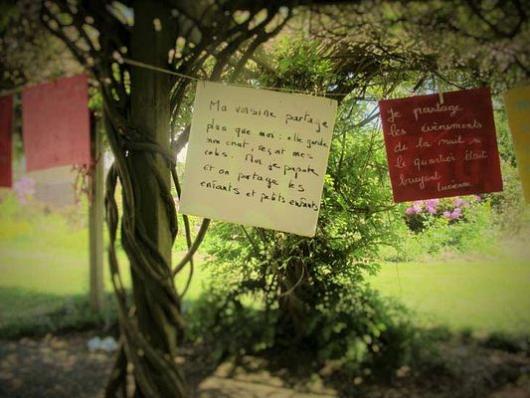 Ma voisine partage
plus que moi: elle garde
mon chat, reçoit mes
colis. Moi je papote
et on partage les
enfants et petits enfants
Je partage
les évènements
de la nuit si
le quartier était
bruyant
Lucienne